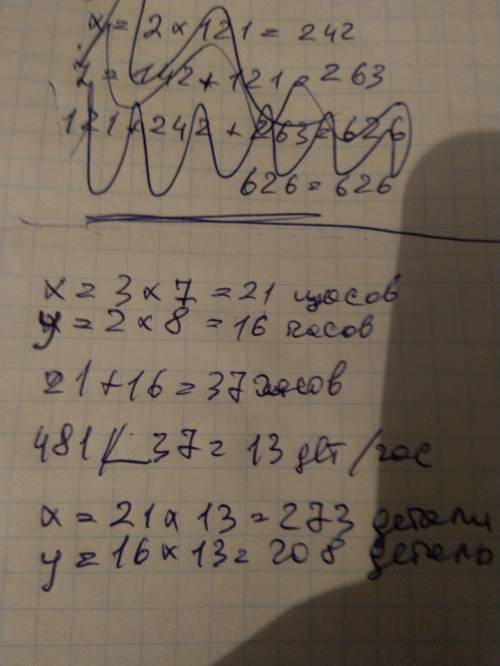 x = 2 x 121 = 242
z = 142 + 121 = 263
121 + 242 + 263 = 626
626 = 626
x = 3 x 7 = 21 щасов
y = 2 x 8 = 16 часов
21 + 16 = 37 часов
481 / 37 = 13 дет/час
x = 21 x 13 = 273 детали
y = 16 x 13 = 208 детало